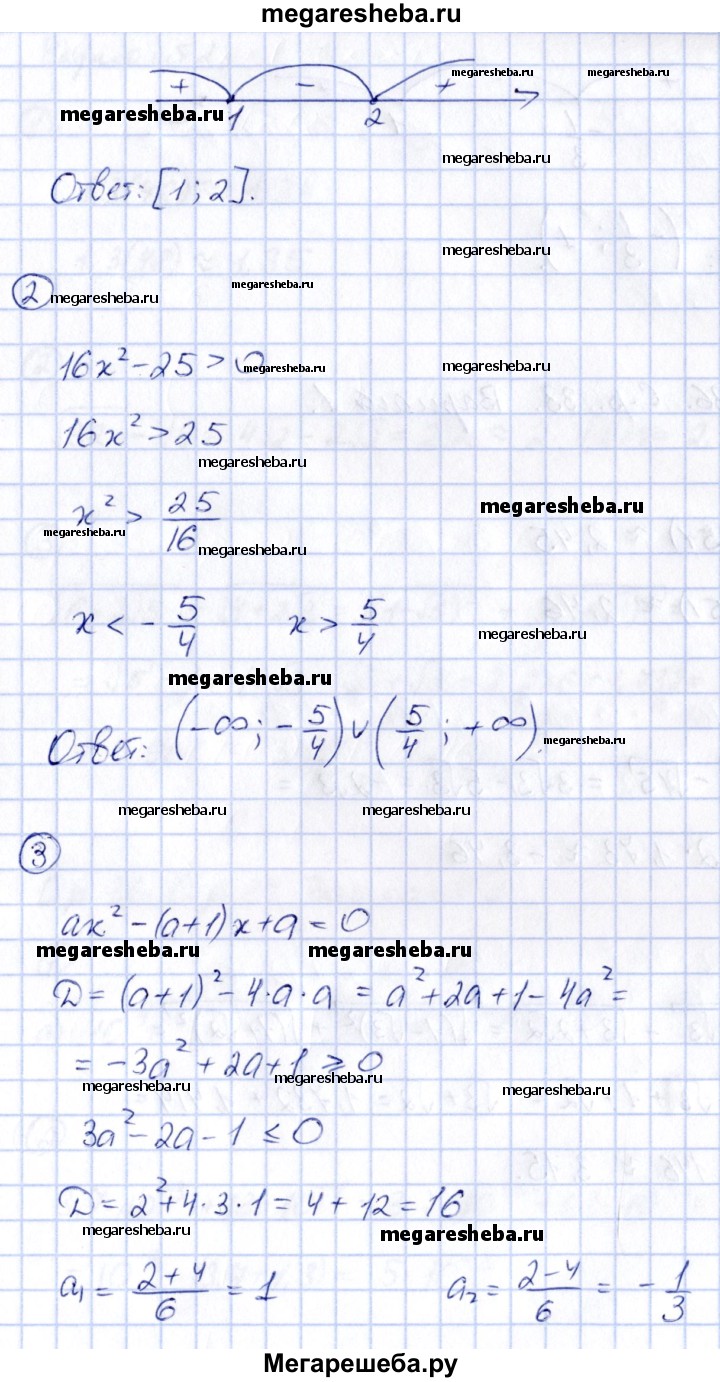 megaresheba.ru
+ - + megaresheba.ru megaresheba.ru
megaresheba.ru 1 2
megaresheba.ru
Ответ: [1; 2].
megaresheba.ru
2 megaresheba.ru megaresheba.ru
16x² - 25 > 0 megaresheba.ru megaresheba.ru
16x² > 25
megaresheba.ru
x² > 25/16 megaresheba.ru
megaresheba.ru megaresheba.ru
x < - 5/4 x > 5/4 megaresheba.ru
megaresheba.ru
Ответ: (-∞; - 5/4) ∪ (5/4; +∞). megaresheba.ru
megaresheba.ru megaresheba.ru
3
ax² - (a+1)x + a = 0
megaresheba.ru megaresheba.ru
D = (a+1)² - 4·a·a = a² + 2a + 1 - 4a² =
= -3a² + 2a + 1 ≥ 0
megaresheba.ru megaresheba.ru megaresheba.ru
3a² - 2a - 1 ≤ 0
D = 2² + 4·3·1 = 4 + 12 = 16
megaresheba.ru megaresheba.ru
a₁ = (2+4)/6 = 1 a₂ = (2-4)/6 = - 1/3
Мегарешеба.ру